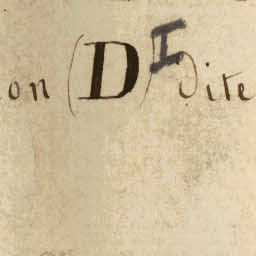 on (D) I dite